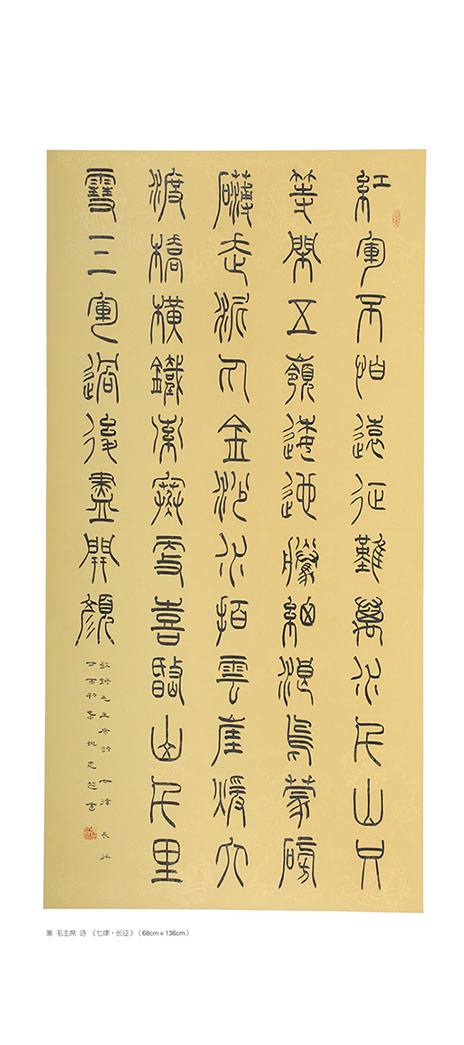 紅軍不怕遠征難萬水千山只
等閑五嶺逶迤騰細浪烏蒙磅
礴走泥丸金沙水拍雲崖暖大
渡橋橫鐵索寒更喜岷山千里
雪三軍過後盡開顏
敬錄毛主席詩 七律 長征
丁酉初書
篆 毛主席 诗 《七律·长征》（68cm×136cm）